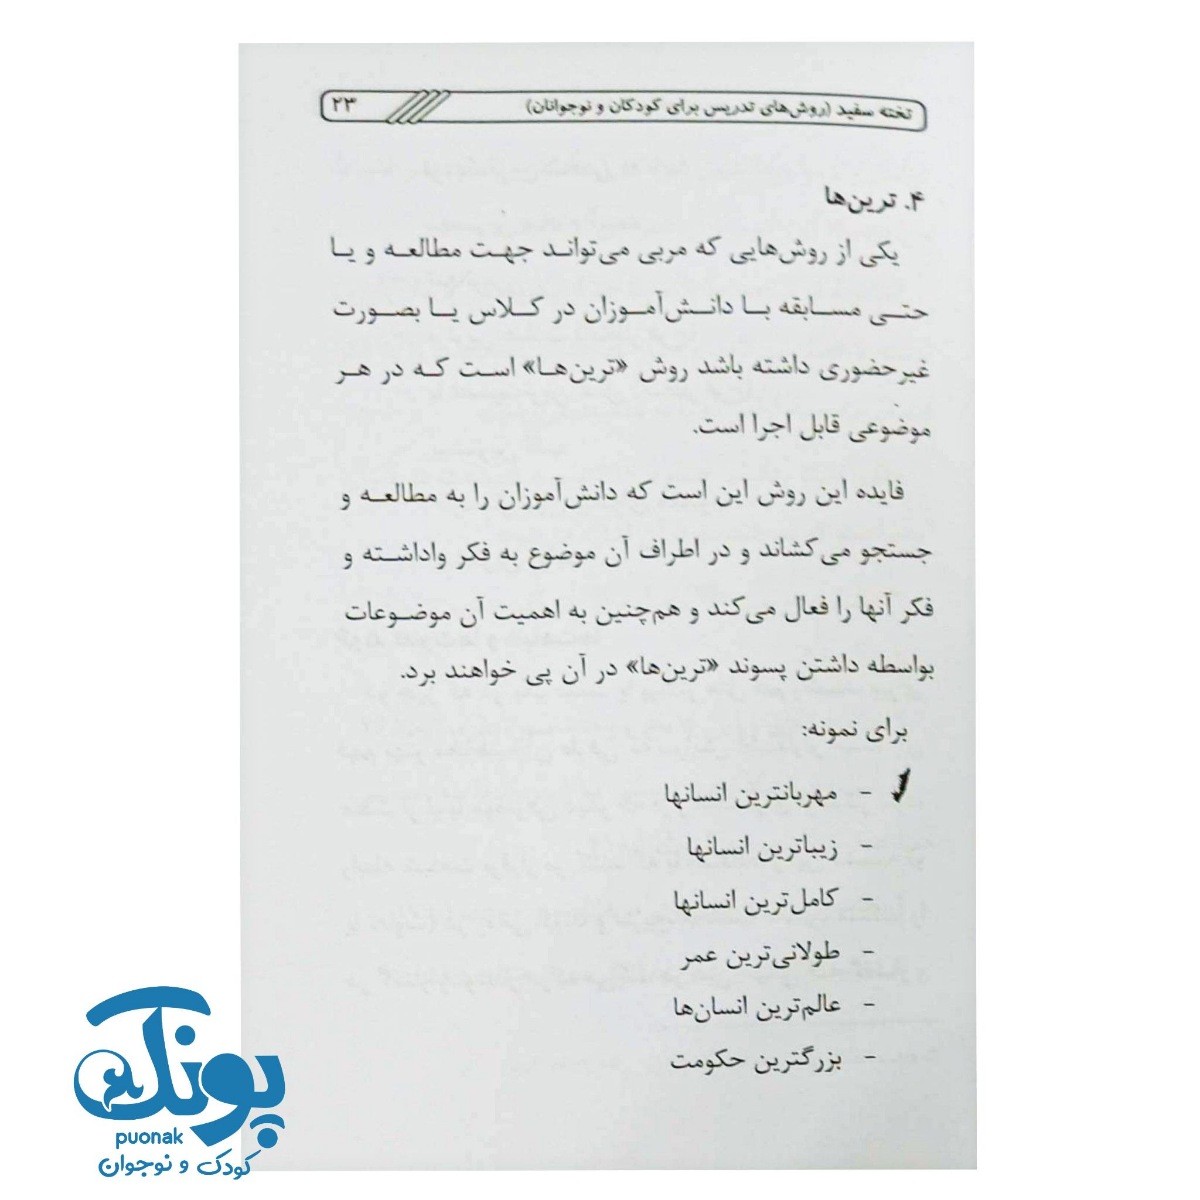 تخته سفید (روش‌های تدریس برای کودکان و نوجوانان) ۲۳
۴. ترین‌ها
یکی از روش‌هایی که مربی می‌تواند جهت مطالعه و یا
حتی مسابقه با دانش‌آموزان در کلاس یا بصورت
غیرحضوری داشته باشد روش «ترین‌ها» است که در هر
موضوعی قابل اجرا است.
فایده این روش این است که دانش‌آموزان را به مطالعه و
جستجو می‌کشاند و در اطراف آن موضوع به فکر واداشته و
فکر آنها را فعال می‌کند و هم‌چنین به اهمیت آن موضوعات
بواسطه داشتن پسوند «ترین‌ها» در آن پی خواهند برد.
برای نمونه:
- مهربانترین انسانها
- زیباترین انسانها
- کامل‌ترین انسانها
- طولانی‌ترین عمر
- عالم‌ترین انسان‌ها
- بزرگترین حکومت
پونک
puonak
کودک و نوجوان